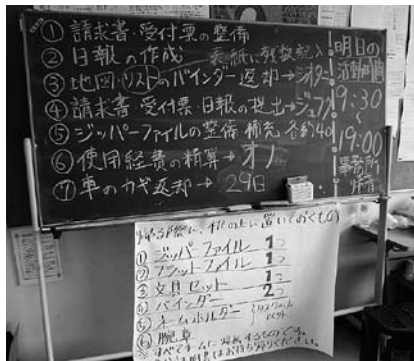 ① 請求書・受付票の整備
② 日報の作成 表紙に残数記入
③ 地図・リストのバインダー返却→シオタ
④ 請求書・受付票・日報の提出→ジュフク
⑤ ジッパーファイルの整備 補充 各約40
⑥ 使用経費の精算→オノ
⑦ 車のカギ返却→29日
明日の
活動時間
9:30
〜
19:00
事務所
帰着
帰る際に、机の上に置いておくもの
① ジッパーファイル 1つ
② フラットファイル 1つ
③ 文具セット 1つ
④ バインダー 2つ
⑤ ネームホルダー
⑥ 腕章